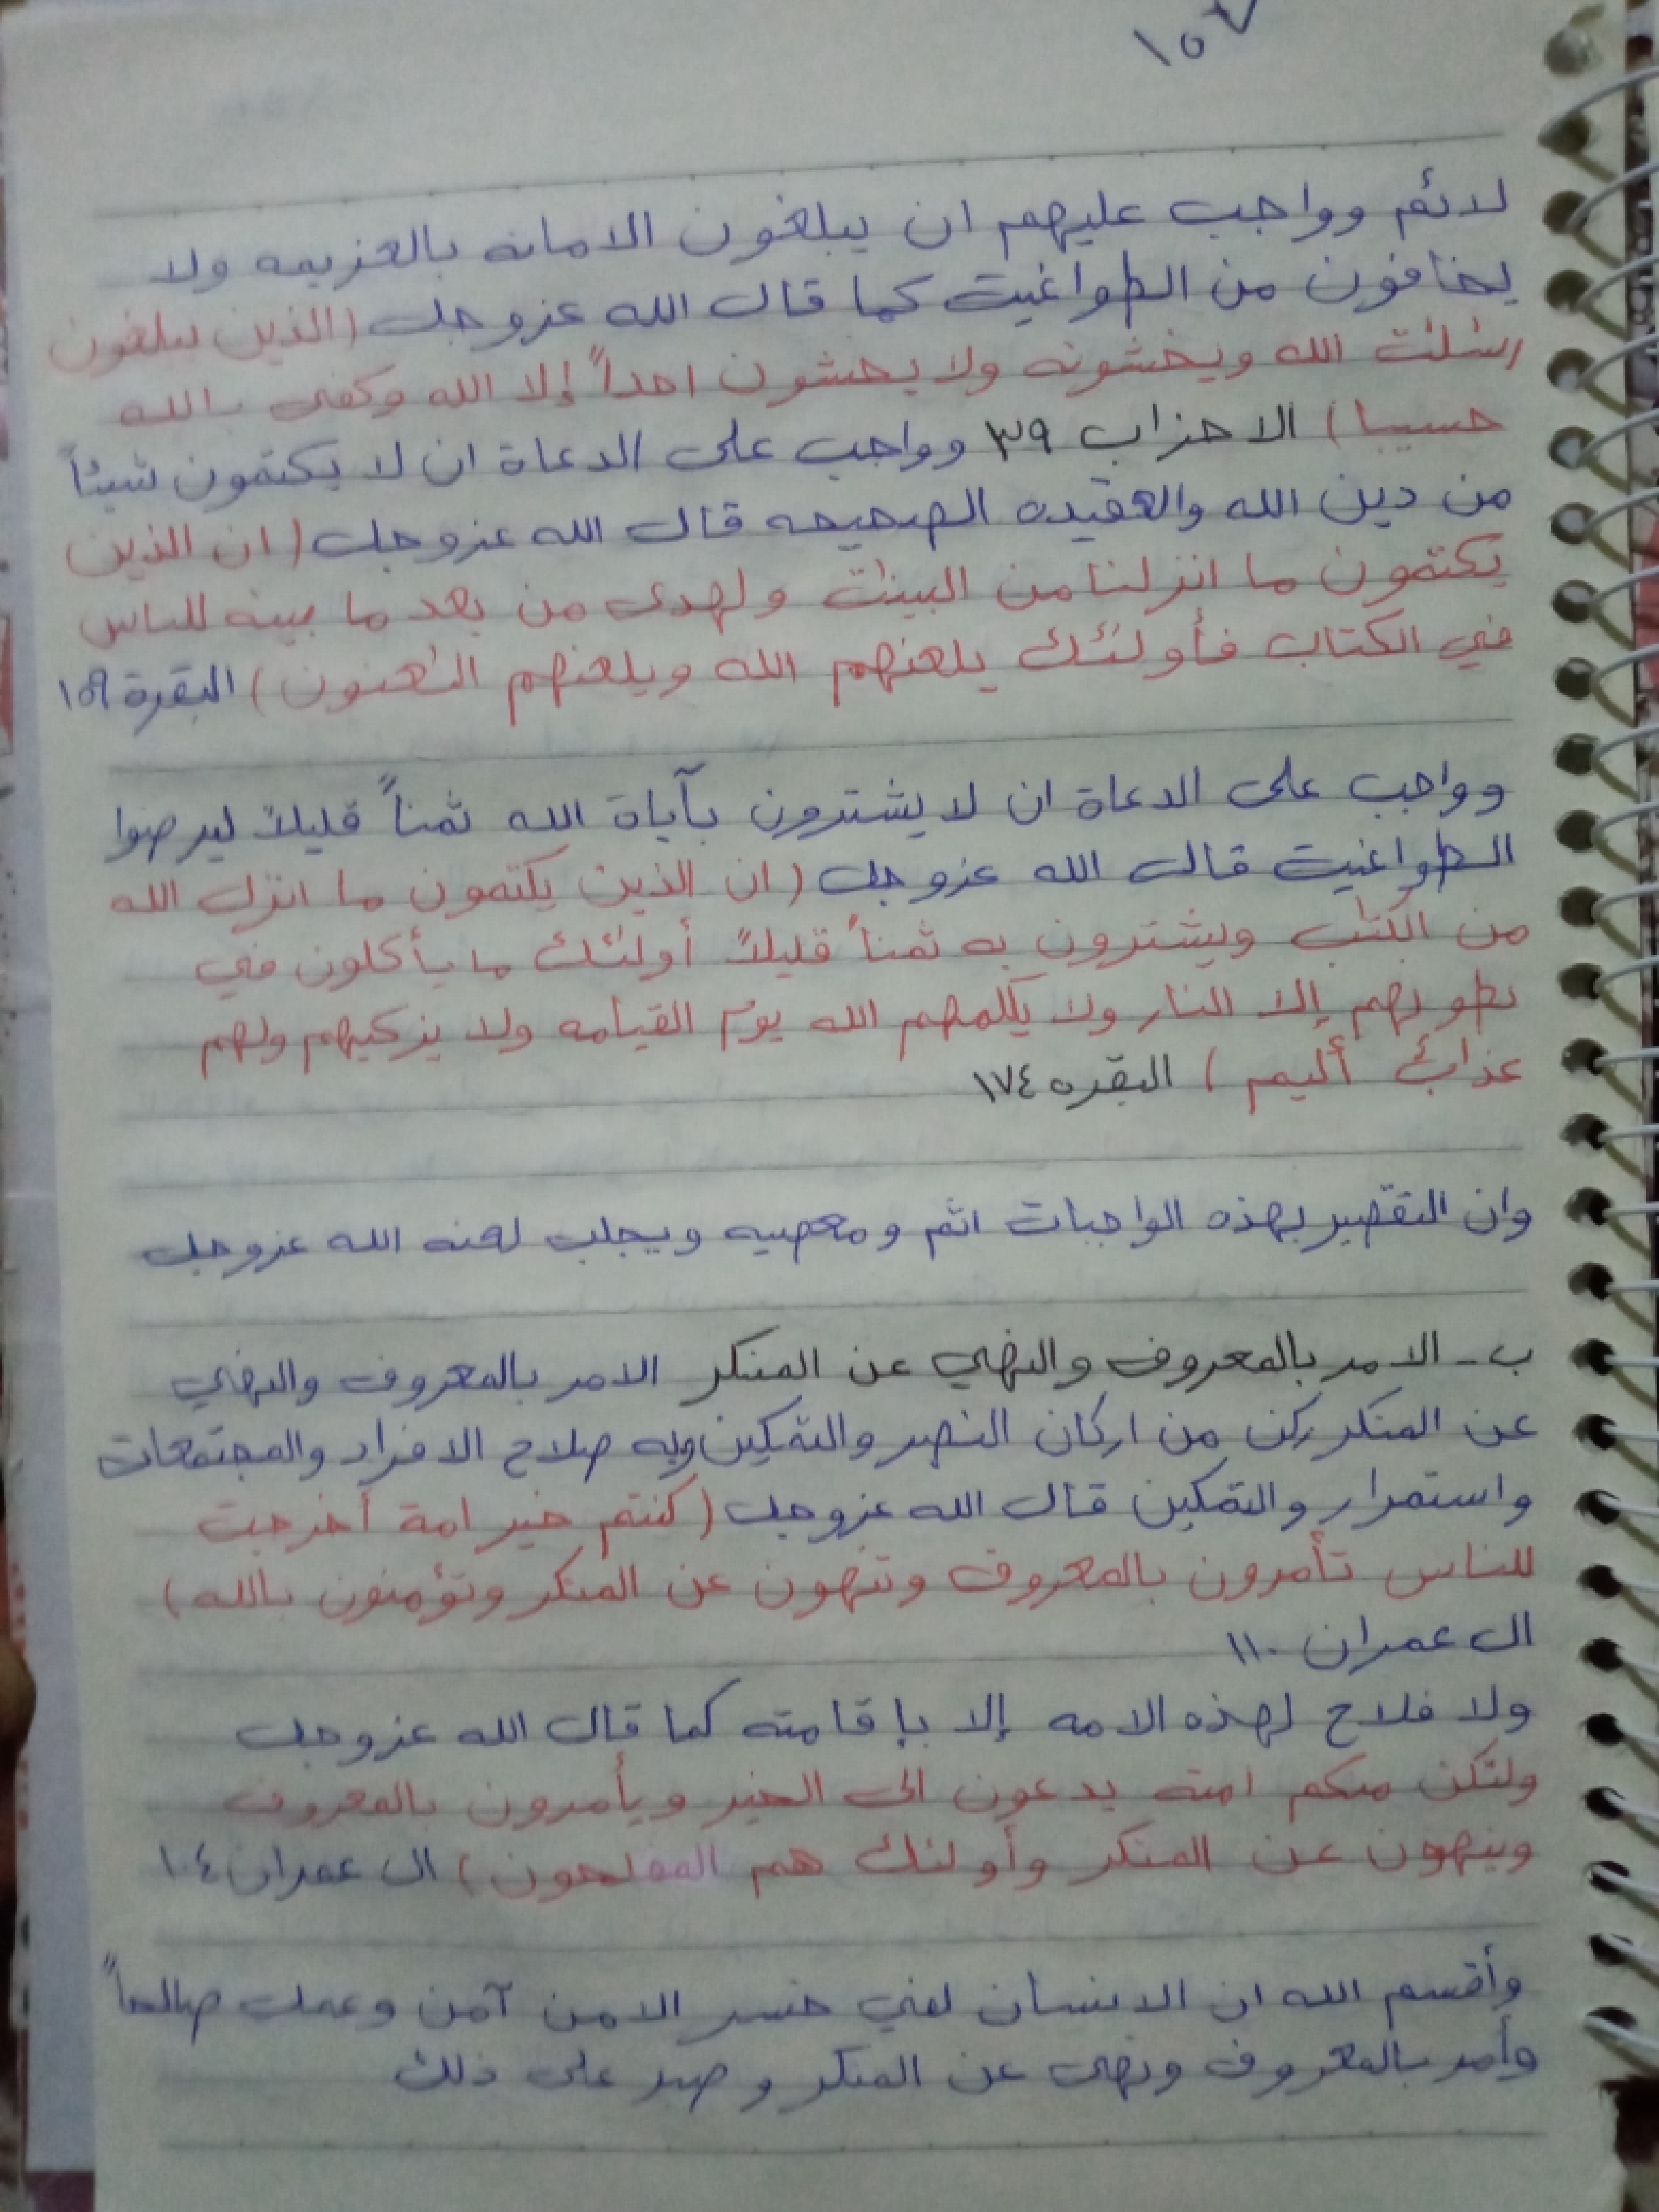 ١٥٧
لائم وواجب عليهم ان يبلغون الامانه بالعزيمه ولا
يخافون من الطواغيت كما قال الله عزوجل (الذين يبلغون
رسٰلٰت الله ويخشونه ولا يخشون احداً إلا الله وكفى بالله
حسيبا) الاحزاب ٣٩ وواجب على الدعاة ان لا يكتمون شيئاً
من دين الله والعقيده الصحيحه قال الله عزوجل (ان الذين
يكتمون ما انزلنا من البينٰت ولهدى من بعد ما بينه للناس
في الكتاب فأولئك يلعنهم الله ويلعنهم اللٰعنون) البقرة ١٥٩
وواجب على الدعاة ان لا يشترون بآياة الله ثمناً قليلاً ليرضوا
الطواغيت قال الله عزوجل (ان الذين يكتمون ما انزل الله
من الكتٰب ويشترون به ثمناً قليلاً أولئك ما يأكلون في
بطونهم إلا النار ولا يكلمهم الله يوم القيامه ولا يزكيهم ولهم
عذابٌ أليم) البقره ١٧٤
وان التقصير بهذه الواجبات اثم ومعصيه ويجلب لعنه الله عزوجل
ب - الامر بالمعروف والنهي عن المنكر الامر بالمعروف والنهي
عن المنكر ركن من اركان النصر والتمكين وبه صلاح الافراد والمجتمعات
واستمرار والتمكين قال الله عزوجل (كنتم خير امة أخرجت
للناس تأمرون بالمعروف وتنهون عن المنكر وتؤمنون بالله)
ال عمران ١١٠
ولا فلاح لهذه الامه إلا بإقامته كما قال الله عزوجل
ولتكن منكم امته يدعون الى الخير ويأمرون بالمعروف
وينهون عن المنكر وأولئك هم المفلحون) ال عمران ١٠٤
وأقسم الله ان الانسان لفي خسر الا من آمن وعمل صالحاً
وأمر بالمعروف ونهى عن المنكر وصبر على ذلك